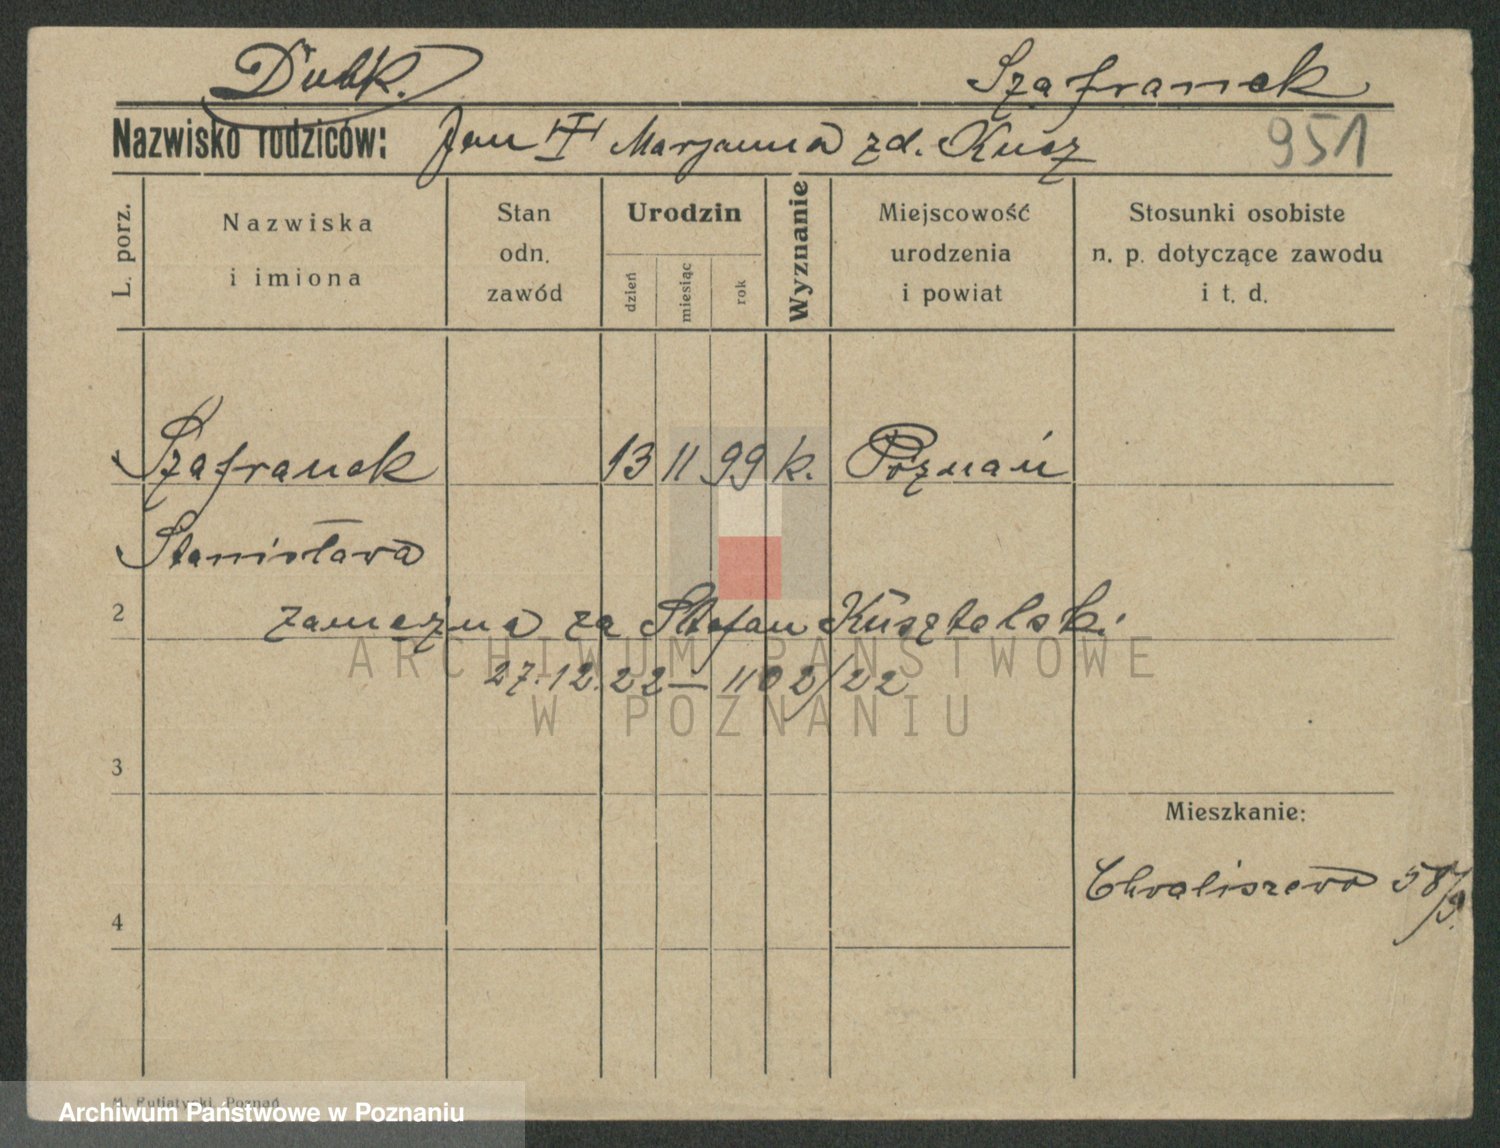 Dubk. Szafranek
Nazwisko rodziców: Jan Marjanna zd. Kusz 951
L. porz.
Nazwiska i imiona
Stan odn. zawód
Urodzin
dzień miesiąc rok
Wyznanie
Miejscowość urodzenia i powiat
Stosunki osobiste n. p. dotyczące zawodu i t. d.
Szafranek 13 11 99 k. Poznań
Stanisława
2 zamężna za Stefan Kusztelski
27.12.22 — 1102/22
3
Mieszkanie:
Chwaliszewo 58/9.
4
ARCHIWUM PAŃSTWOWE
W POZNANIU
M. Putiatycki, Poznań
Archiwum Państwowe w Poznaniu